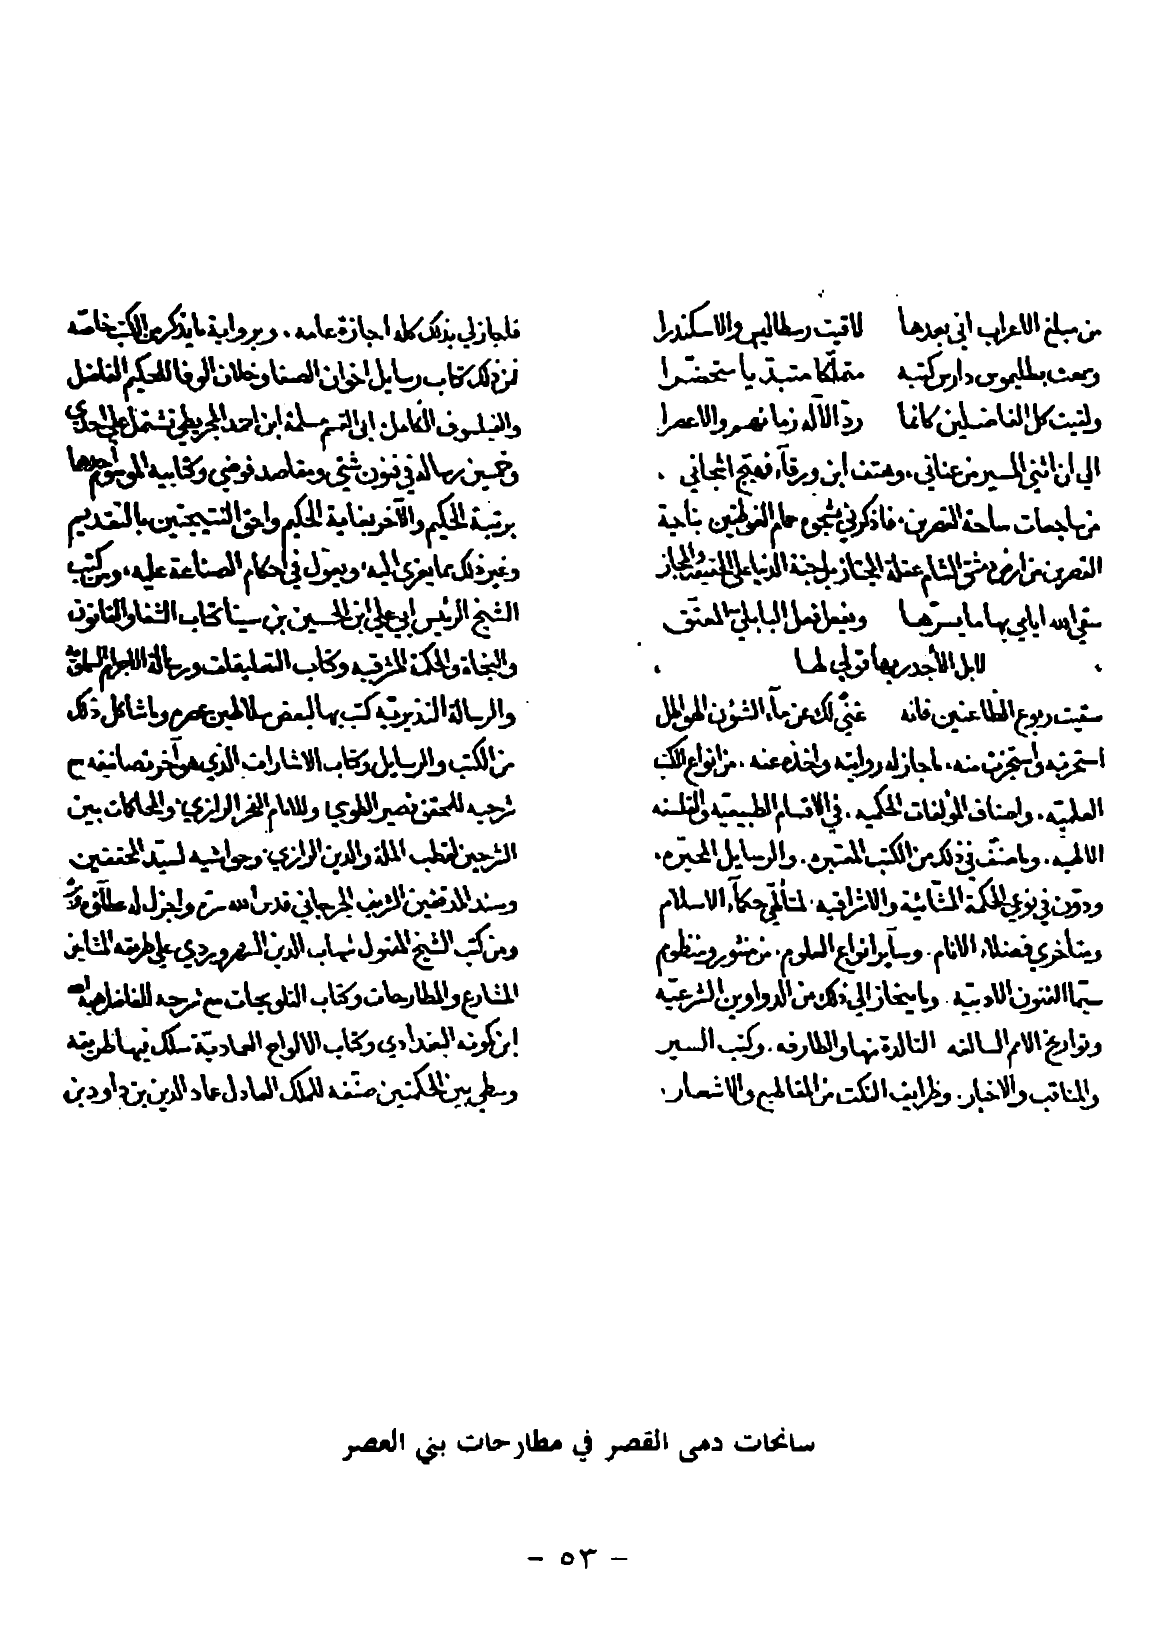 من مبلغ الاعراب اني بعدها لاقيت رسطاليس والاسكندرا
وسمعت بطليموس دارس كتبه متملكا متبديا متحضرا
ولقيت كل الفاضلين كانما ردّ الآله زمانهم والاعصرا
الي ان انثني المسير من عناني. وهتف ابن ورقآء فهيّج اشجاني.
من ساحة القصرين. فاذكرني شجوع حمام الغوطتين بناحية
القصرين من ارض دمشق الشام بل جنة الدنيا علي الحقيقة والمجاز
سقي الله ايامي بها ما يسرّها ويفعل فعل البابلي المعتق
لابل الأجدر بها قولي لها
سقيت ربوع الظاعنين فانه غنيٌ لك عن مآء الشؤن الهواطل
استجزته واستجزت منه. ما جاز له روايته واخذه عنه. من انواع الكتب
العلميّه. واصناف المؤلفات الحكميه. في الاقسام الطبيعيه والفلسفه
الالهيه. وما صنّف في ذلك من الكتب المعتبره. والرسايل المحبّره.
ودوّن في نوعي الحكمة المشّائية والاشراقيه. لمتألّهي حكمآء الاسلام
ومتأخري فضلاء الانام. وسآير انواع العلوم. من منثور ومنظوم
سيّما الفنون الادبيّه. وما ينحاز الي ذلك من الدواوين الشرعيّه
وتواريخ الامم السالفه التالدة منها والطارفه. وكتب السير
والمناقب والاخبار. وظرايف النكت من المقاطيع والاشعار.
فاجازلي بذلك كله اجازة عامه. وبرواية ما يذكر من الكتب خاصّه
فمن ذلك كتاب رسايل اخوان الصفا وخلان الوفا للحكيم الفاضل
والفيلسوف الكامل. ابي القسم مسلمة ابن احمد المجريطي تشتمل علي احدي
وخمسين رسالة في فنون شتّي ومقاصد فوضي وكتابيه الموسوم احدهما
برتبة الحكيم والآخر بغاية الحكيم واحق النتيجتين بالتقديم
وغير ذلك مما يعزي اليه. ويعوّل في احكام الصناعة عليه. ومن كتب
الشيخ الرئيس ابي علي ابن الحسين بن سينا كتاب الشفا والقانون
والنجاة والحكمة المشرقيه وكتاب التعليقات ورسالة الاجرام العلوية
والرسالة النذيريّه كتب بها لبعض سلاطين عصره وما شاكل ذلك
من الكتب والرسايل وكتاب الاشارات الذي هو آخر تصانيفه مع
شرحيه للمحقق نصير الطوسي وللامام الفخر الرازي. والمحاكمات بين
الشرحين لقطب الملة والدين الرازي. وحواشيه لسيّد المحققين
وسند المدققين الشريف الجرجاني قدس الله سرّه واجزل له عطآئه
ومن كتب الشيخ المقتول شهاب الدين السهروردي علي طريقه المشاين
المشارع والمطارحات وكتاب التلويحات مع شرحه للفاضل هبة الله
ابن كمونه البغدادي وكتاب الالواح العماديّة سلك فيها طريقة
وسطي بين الحكمتين صنّفه للملك العادل عماد الدين بن داود بن
سانحات دمى القصر في مطارحات بني العصر
- ٥٣ -